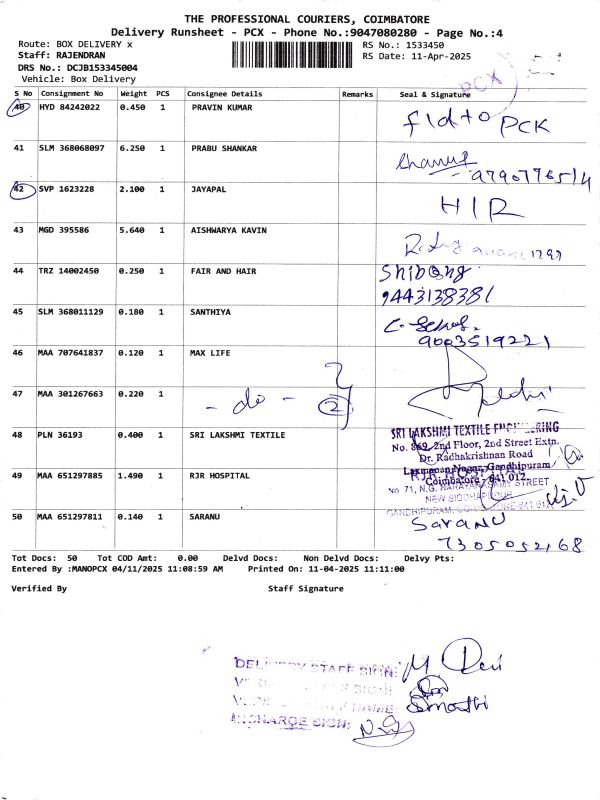 THE PROFESSIONAL COURIERS, COIMBATORE
Delivery Runsheet - PCX - Phone No.:9047080280 - Page No.:4
Route: BOX DELIVERY x
RS No.: 1533450
Staff: RAJENDRAN
RS Date: 11-Apr-2025
DRS No.: DCJB153345004
Vehicle: Box Delivery
PCX
S No Consignment No Weight PCS Consignee Details Remarks Seal & Signature
40 HYD 84242022 0.450 1 PRAVIN KUMAR
PCK
41 SLM 368068097 6.250 1 PRABU SHANKAR
42 SVP 1623228 2.100 1 JAYAPAL
43 MGD 395586 5.640 1 AISHWARYA KAVIN
44 TRZ 14002450 0.250 1 FAIR AND HAIR
9443138381
45 SLM 368011129 0.180 1 SANTHIYA
9003519221
46 MAA 707641837 0.120 1 MAX LIFE
47 MAA 301267663 0.220 1 - do - 2
48 PLN 36193 0.400 1 SRI LAKSHMI TEXTILE
SRI LAKSHMI TEXTILE ENGINEERING
No. 869, 2nd Floor, 2nd Street Extn.
Dr. Radhakrishnan Road
Laxmanan Nagar, Gandhipuram
Coimbatore - 641 012.
49 MAA 651297885 1.490 1 RJR HOSPITAL
No. 71, N.G. NARAYANASAMY STREET
NEW SIDDHAPUDUR
GANDHIPURAM, COIMBATORE-641 012
50 MAA 651297811 0.140 1 SARANU
SARANU
7305052168
Tot Docs: 50 Tot COD Amt: 0.00 Delvd Docs: Non Delvd Docs: Delvy Pts:
Entered By :MANOPCX 04/11/2025 11:08:59 AM Printed On: 11-04-2025 11:11:00
Verified By Staff Signature
DELIVERY STAFF SIGN:
INCHARGE SIGN: